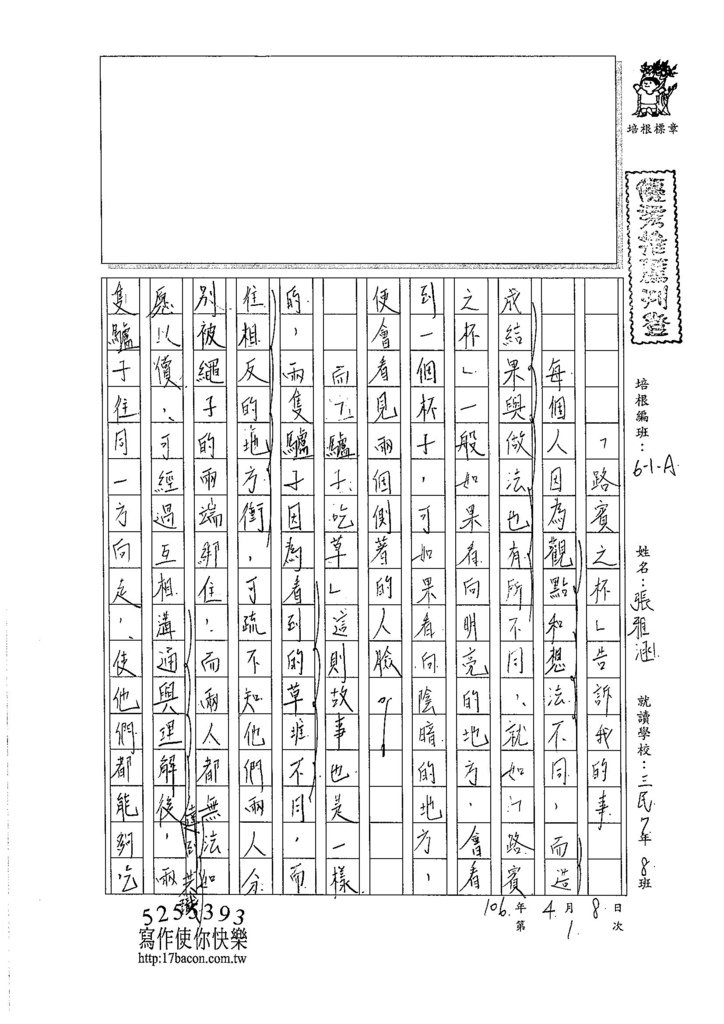 培根標章
優秀推薦刊登
培根編班：6-1-A
姓名：張雅涵
就讀學校：三民7年8班
106年4月8日
第1次
「路賓之杯」告訴我的事
每個人因為觀點和想法不同，而造
成結果與做法也有所不同，就如「路賓
之杯」一般如果看向明亮的地方，會看
到一個杯子，可如果看向陰暗的地方，
便會看見兩個側著的人臉。
而「驢子吃草」這則故事也是一樣
的，兩隻驢子因為看到的草堆不同，而
往相反的地方衝，可疏不知他們兩人分
別被繩子的兩端綁住，而兩人都無法如
愿以償，可經過互相溝通與理解後，兩
達到共識
隻驢子往同一方向走，使他們都能夠吃
5255393
寫作使你快樂
http:17bacon.com.tw